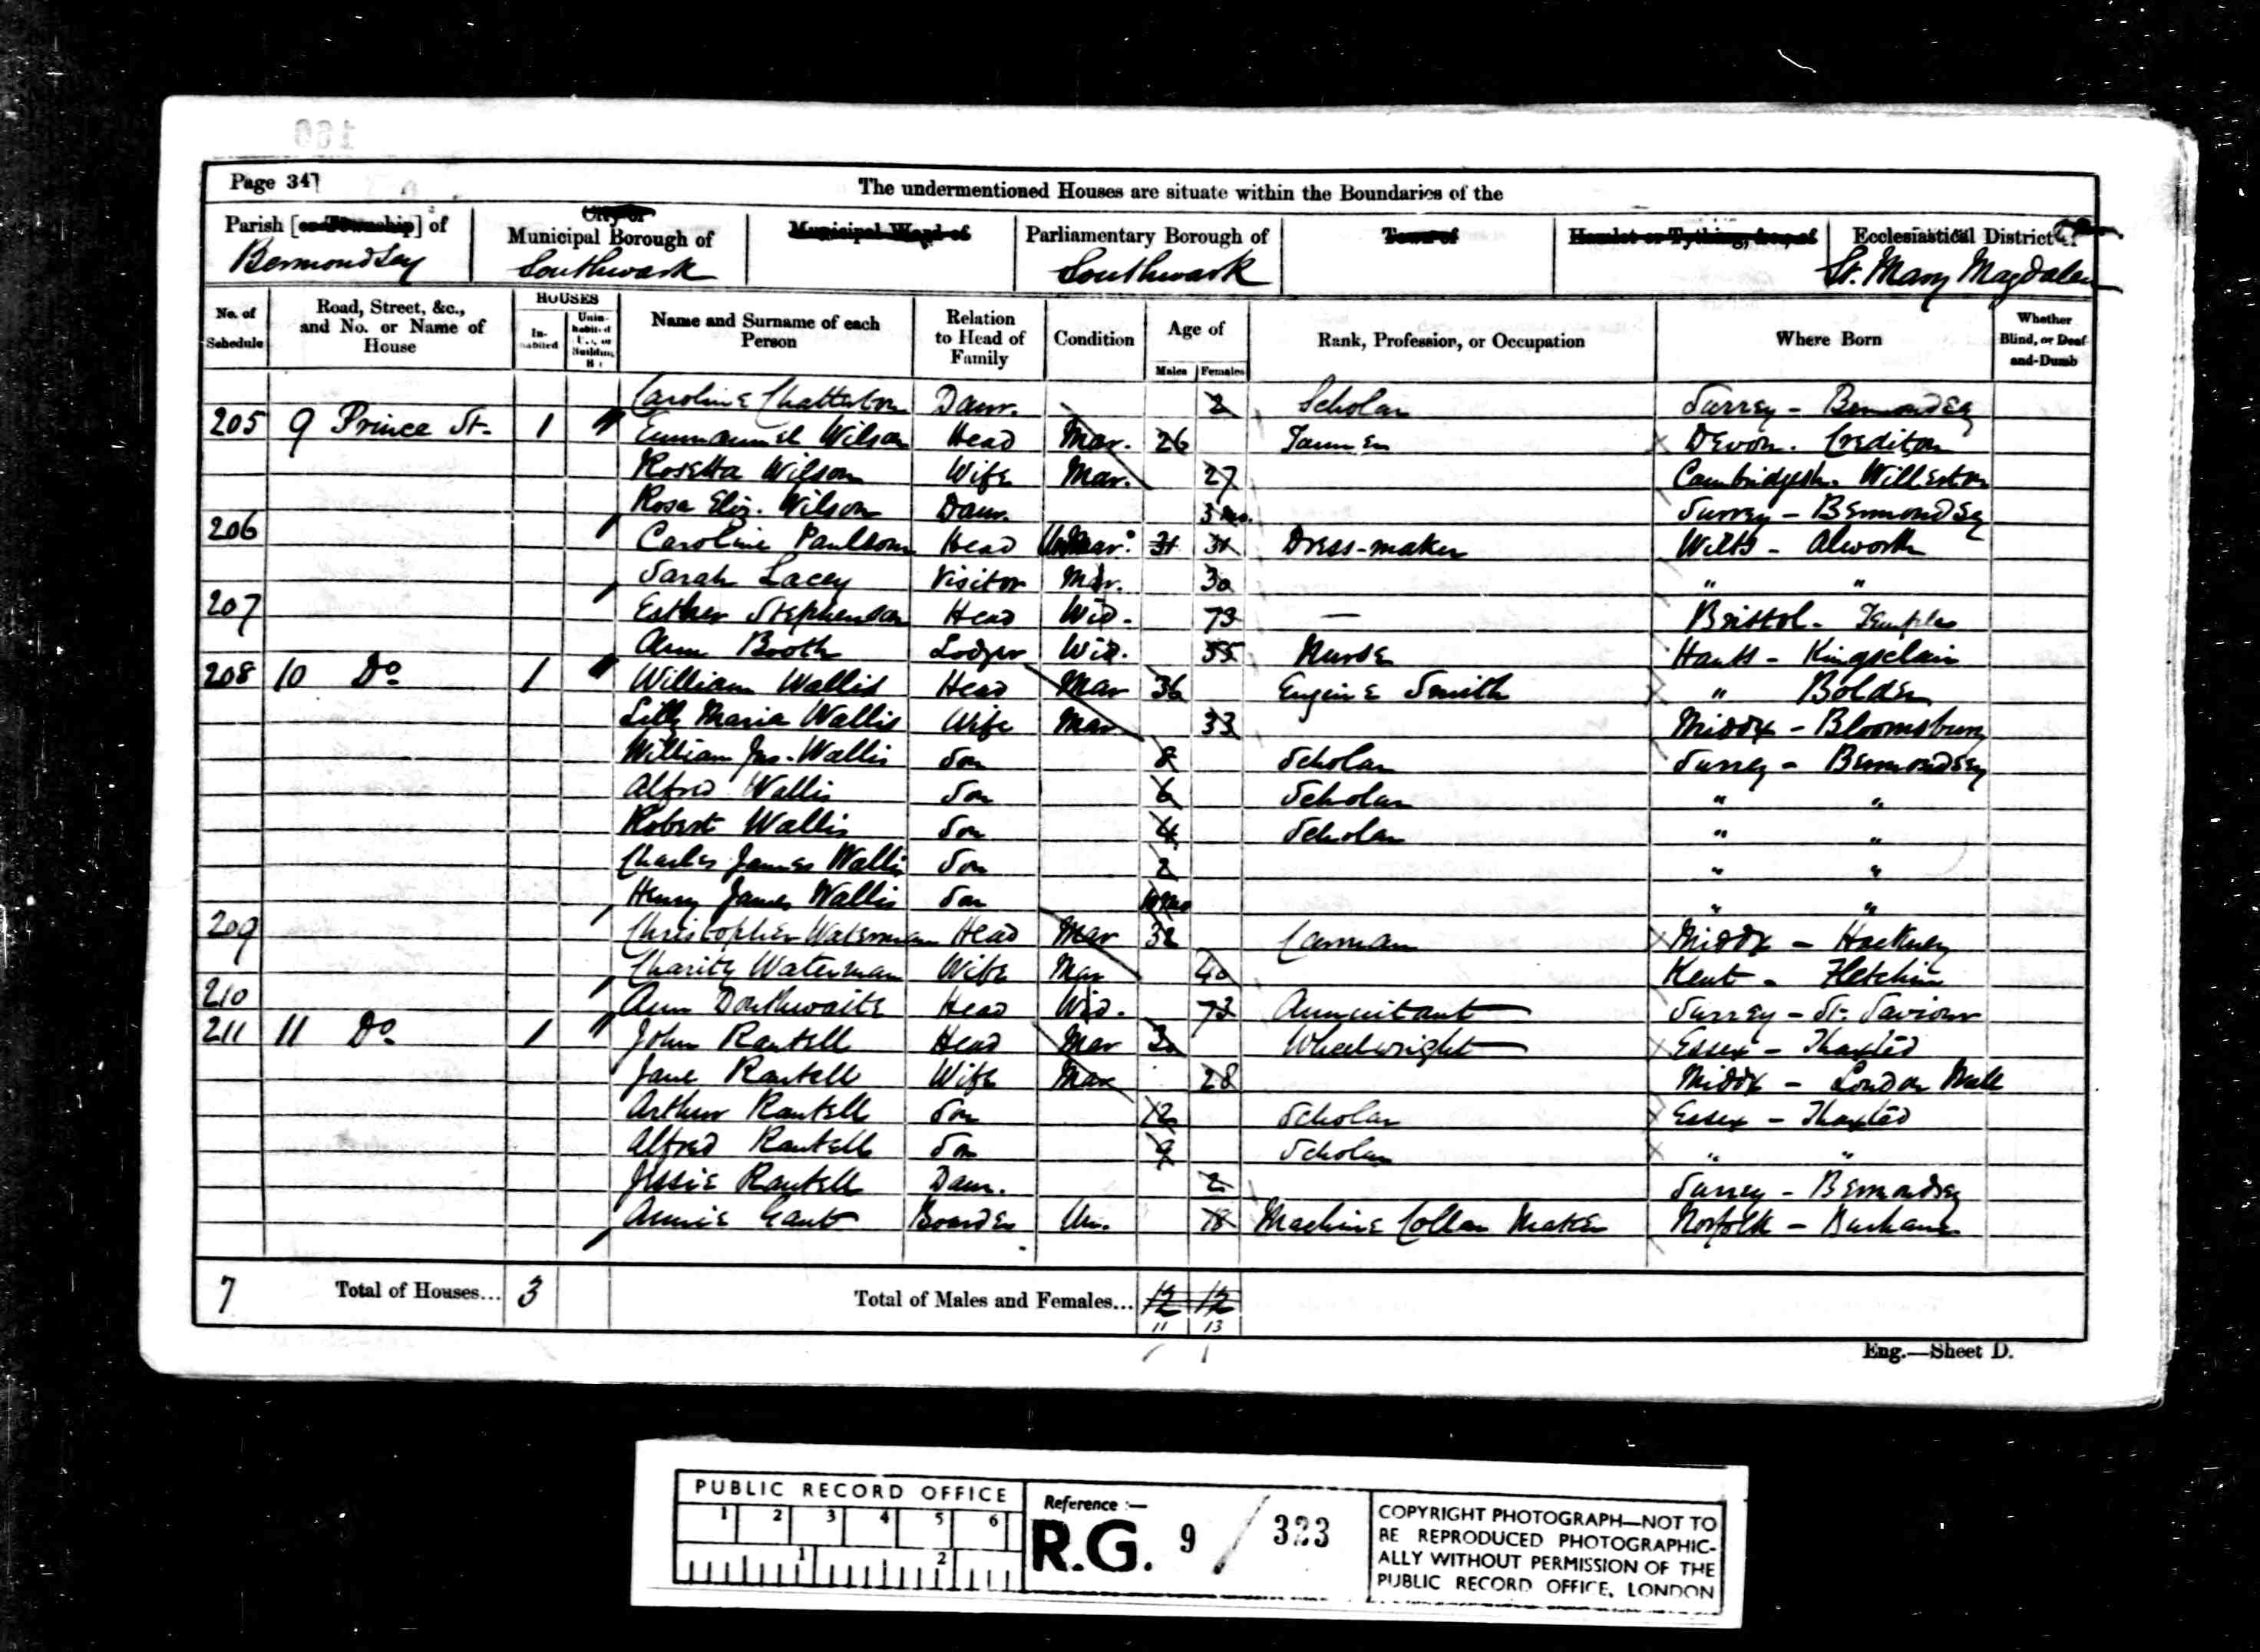 Page 34
The undermentioned Houses are situate within the Boundaries of the
Parish [or Township] of Bermondsey
City or Municipal Borough of Southwark
Municipal Ward of
Parliamentary Borough of Southwark
Town of
Hamlet or Tything, &c., of
Ecclesiastical District of St. Mary Magdalen
No. of Schedule
Road, Street, &c., and No. or Name of House
HOUSES
Inhabited
Uninhabited
Name and Surname of each Person
Relation to Head of Family
Condition
Age of
Males Females
Rank, Profession, or Occupation
Where Born
Whether Blind, or Deaf-and-Dumb
Caroline Chatterton Daur. 2 Scholar Surrey - Bermondsey
205 9 Prince St. 1 Emmanuel Wilson Head Mar. 26 Tanner Devon. Crediton
Rosetta Wilson Wife Mar. 27 Cambridgesh. Willeston
Rosa Eliz. Wilson Daur. 3 mo. Surrey - Bermondsey
206 Caroline Paulsom Head Unmar. 31 31 Dress-maker Wilts - Alworth
Sarah Lacey Visitor Mar. 30 " "
207 Esther Stephenson Head Wid. 73 — Bristol - Temple
Ann Booth Lodger Wid. 55 Nurse Hants - Kingsclair
208 10 Do 1 William Wallis Head Mar 36 Engine Smith " Bolder
Lilly Maria Wallis Wife Mar 33 Middx - Bloomsbury
William Jas. Wallis Son 8 Scholar Surrey - Bermondsey
Alfred Wallis Son 6 Scholar " "
Robert Wallis Son 4 Scholar " "
Charles James Wallis Son 2 " "
Henry James Wallis Son 10 mo " "
209 Christopher Waterman Head Mar 32 Carman Middx - Hackney
Charity Waterman Wife Mar 40 Kent - Fletchin
210 Ann Douthwaite Head Wid. 73 Annuitant Surrey - St. Saviour
211 11 Do 1 John Rantell Head Mar 30 Wheelwright Essex - Thaxted
Jane Rantell Wife Mar 28 Middx - London Wall
Arthur Rantell Son 12 Scholar Essex - Thaxted
Alfred Rantell Son 9 Scholar " "
Jessie Rantell Daur. 2 Surrey - Bermondsey
Annie Gant Boarder Un. 18 Machine Collar Maker Norfolk -
7 Total of Houses... 3 Total of Males and Females... 12 12
11 13
Eng.—Sheet D.
PUBLIC RECORD OFFICE
1 2 3 4 5 6
1 2
Reference :—
R.G. 9 / 323
COPYRIGHT PHOTOGRAPH—NOT TO
BE REPRODUCED PHOTOGRAPHIC-
ALLY WITHOUT PERMISSION OF THE
PUBLIC RECORD OFFICE, LONDON